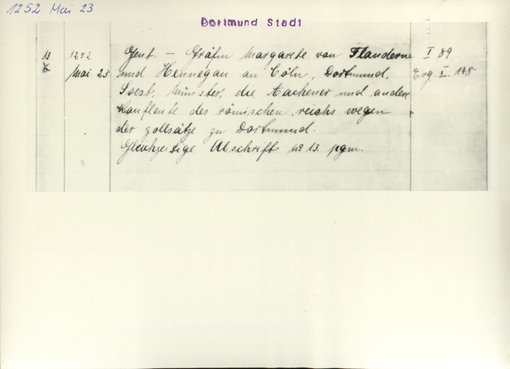 1252 Mai 23
Dortmund Stadt
13 1252 Gent. – Gräfin Margarete von Flandern I 89
Mai 23 und Hennegau an Cöln, Dortmund, Erg. I 195
Soest, Münster, die Aachener und andere
Kaufleute des römischen reichs wegen
der zollsätze zu Dortmund.
Gleichzeitige Abschrift no 13 pgm.